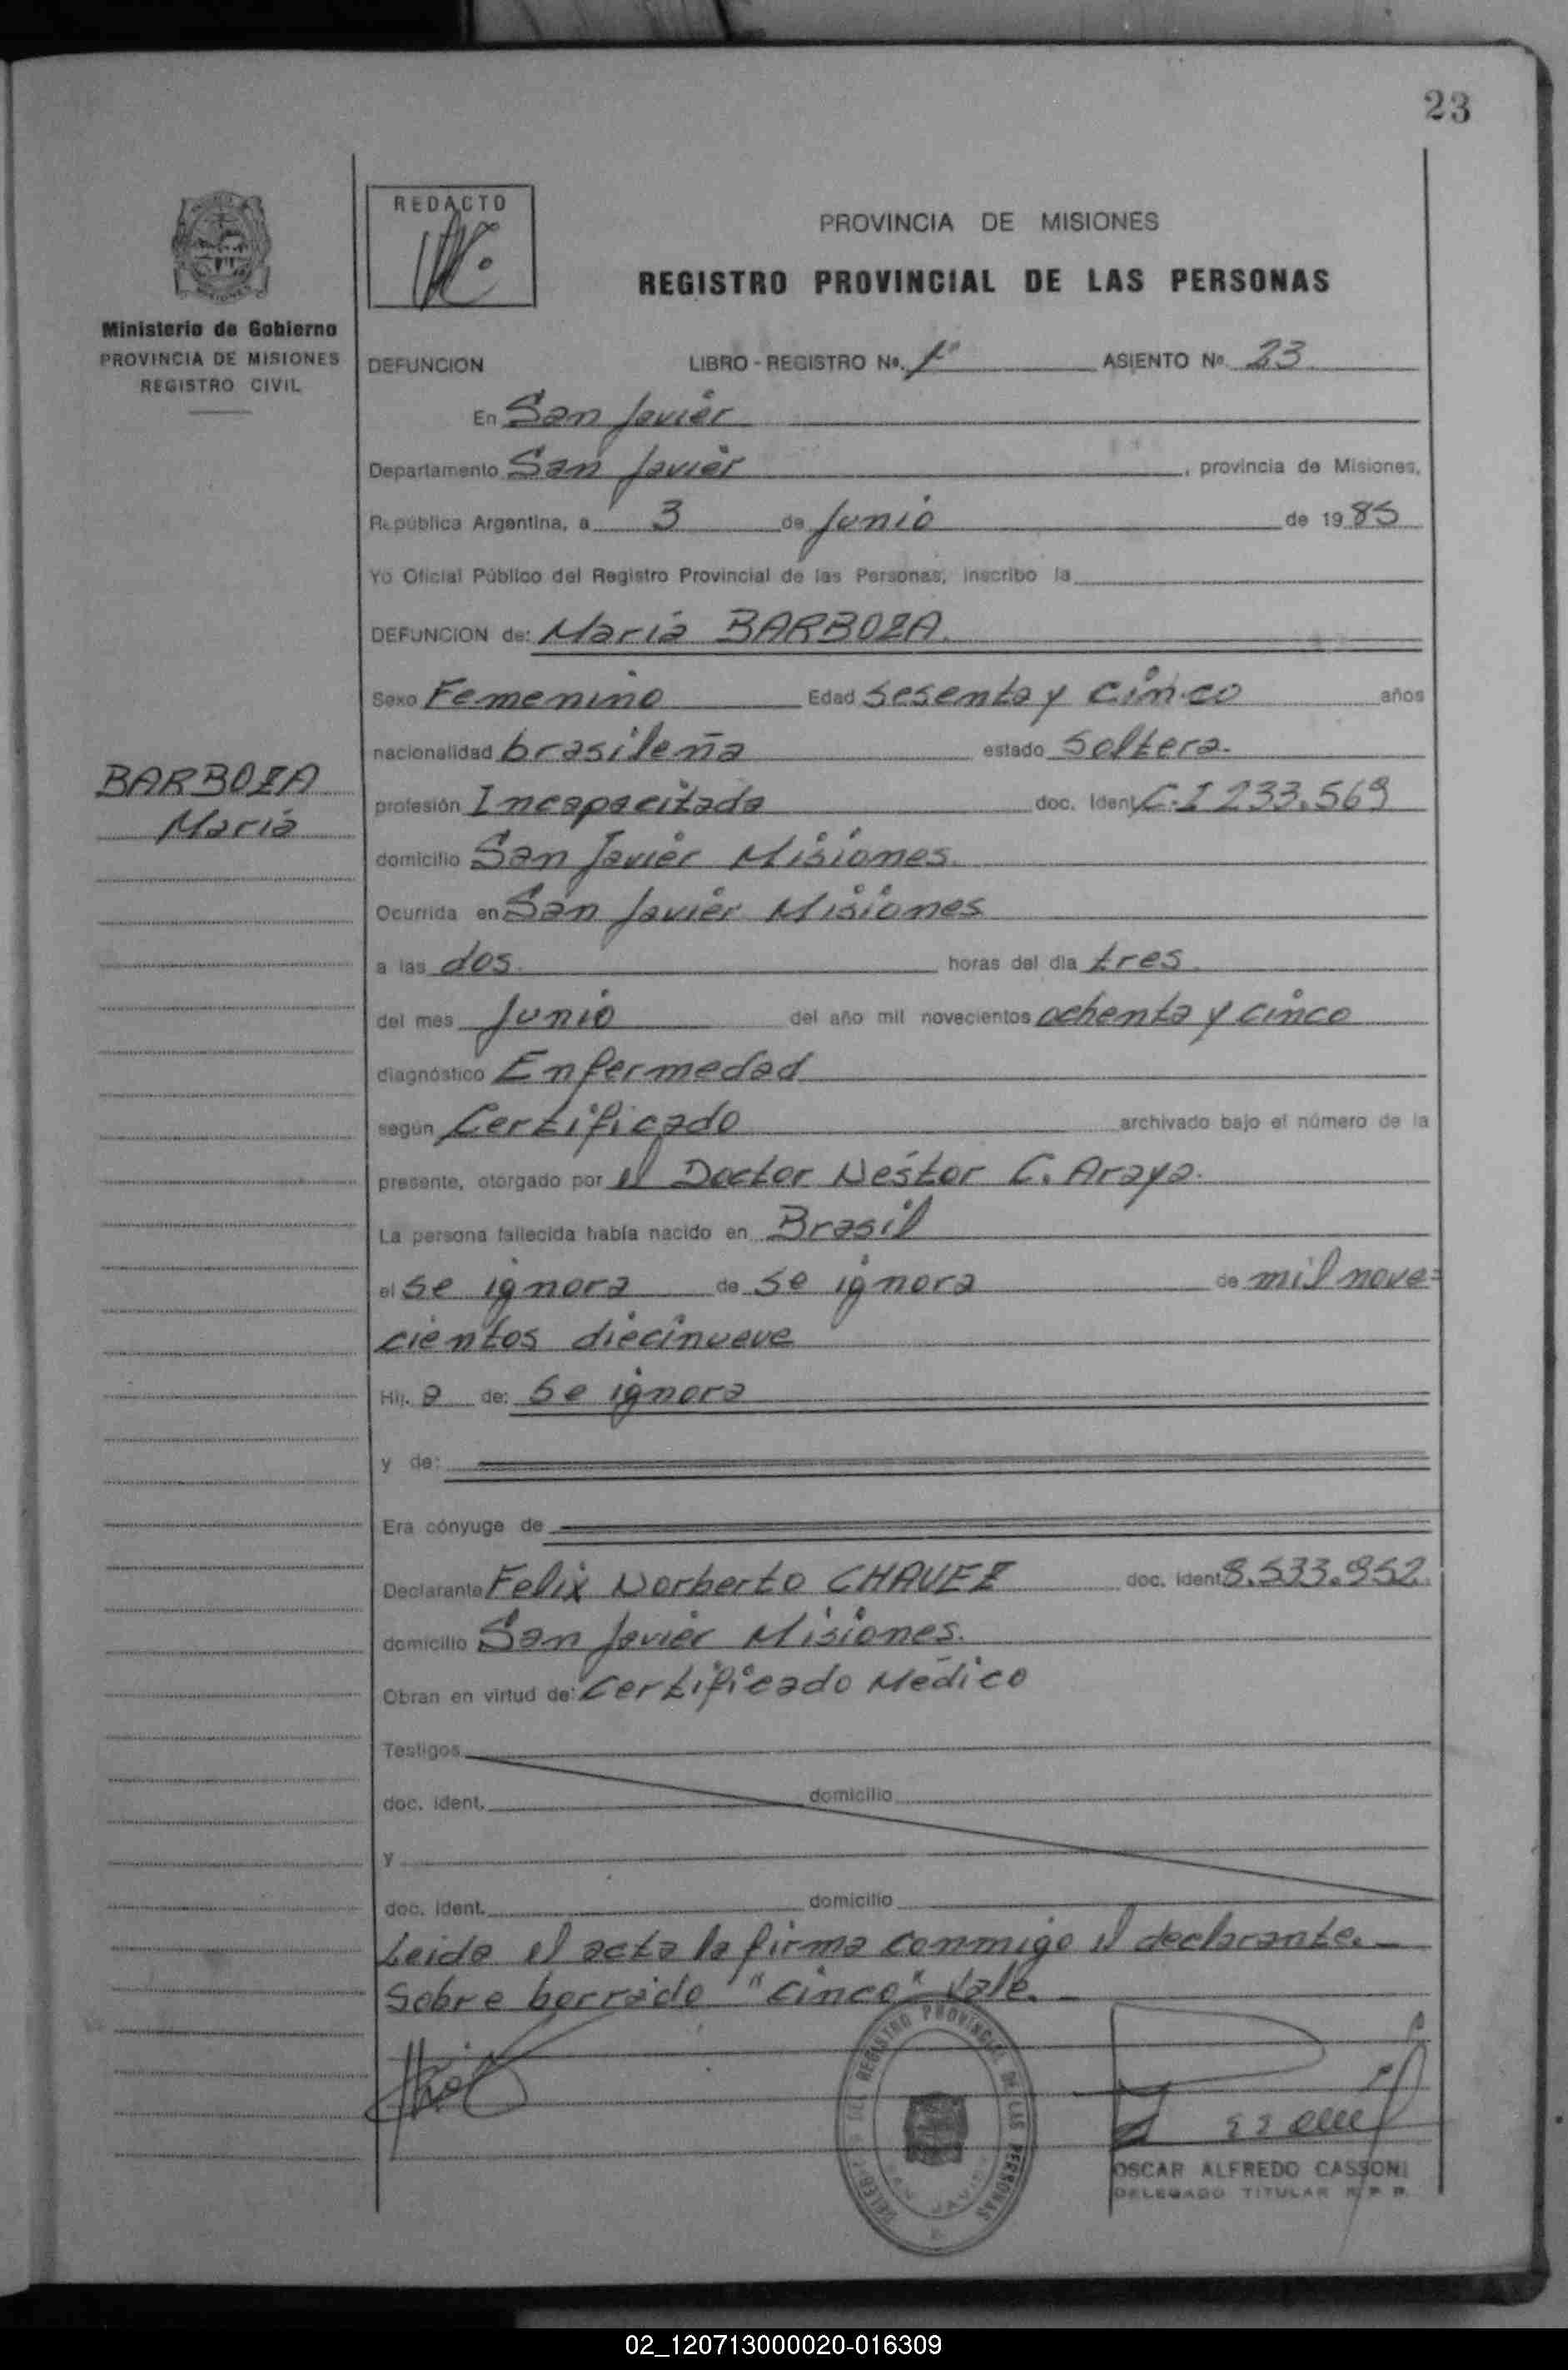 23
REDACTO
PROVINCIA DE MISIONES
REGISTRO PROVINCIAL DE LAS PERSONAS
Ministerio de Gobierno
PROVINCIA DE MISIONES
REGISTRO CIVIL
DEFUNCION LIBRO - REGISTRO No. 1º ASIENTO No. 23
En San Javier
Departamento San Javier, provincia de Misiones,
República Argentina, a 3 de Junio de 1985
Yo Oficial Público del Registro Provincial de las Personas, inscribo la
DEFUNCION de: Maria BARBOZA
Sexo Femenino Edad Sesenta y Cinco años
nacionalidad brasileña estado Soltera.
BARBOZA
Maria
profesión Incapacitada doc. Ident. C.I 233.569
domicilio San Javier Misiones.
Ocurrida en San Javier Misiones
a las dos horas del día tres
del mes Junio del año mil novecientos ochenta y cinco
diagnóstico Enfermedad
según Certificado archivado bajo el número de la
presente, otorgado por el Doctor Nestor C. Araya.
La persona fallecida había nacido en Brasil
el se ignora de se ignora de mil nove=
cientos diecinueve
Hij. a de: Se ignora
y de:
Era cónyuge de
Declarante Felix Norberto CHAVEZ doc. Ident. 8.533.952.
domicilio San Javier Misiones.
Obran en virtud de: Certificado Médico
Testigos
doc. ident. domicilio
y
doc. ident. domicilio
Leida el acta la firma conmigo el declarante.-
Sobre borrado "cinco" Vale.-
DEL REGISTRO PROVINCIAL DE LAS PERSONAS
SAN JAVIER
OSCAR ALFREDO CASSONI
DELEGADO TITULAR R.P.P.
02_120713000020-016309